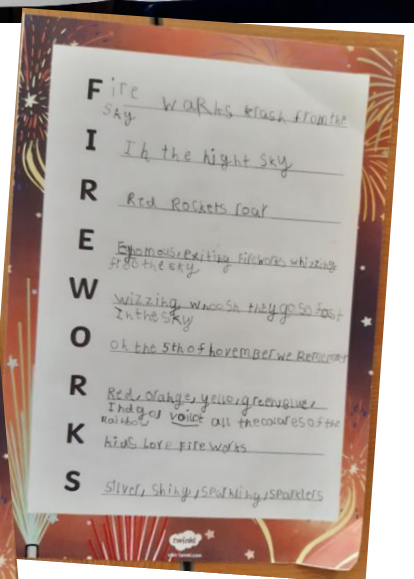 Fire works krash from the
sky
In the night sky
Red Rockets roar
Enomous, exiting fireworks whizzing
the sky
Wizzing whoosh they go so fast
In the sky
On the 5th of november we Remember
Red, orange, yello, green, Blue,
Indgo, voilot all the colores of the
Rainbow
kids Love fire works
Silver, shiny, sparkling, sparklers
twinkl